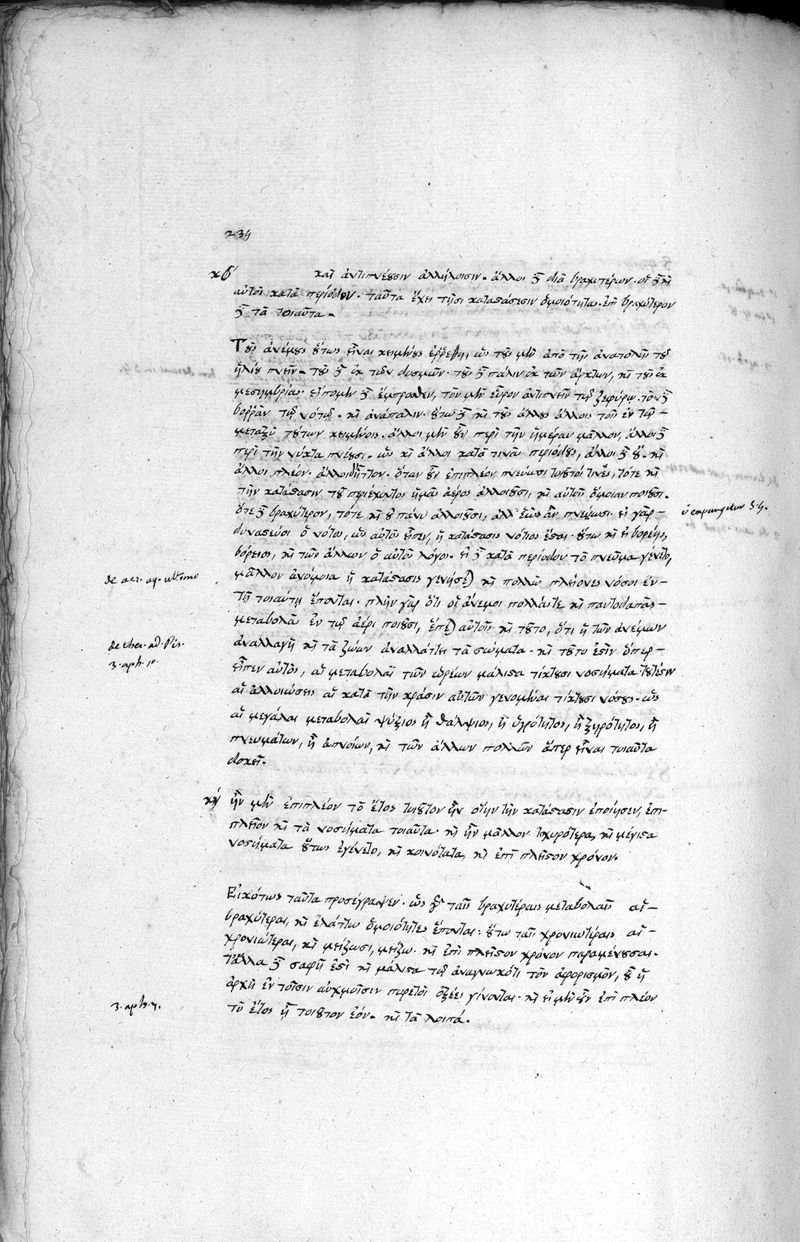 234
κβ′ καὶ ἀντιπνέουσιν ἀλλήλοισιν. ἄλλοι δὲ διὰ βραχυτέρων. οἱ δὲ καὶ
αὐτοὶ κατὰ περίοδον. ταῦτα ἔχει τῇσι καταστάσεσιν ὁμοιότητας. ἐπὶ βραχύτερον
δὲ τὰ τοιαῦτα.
Τοὺς ἀνέμους οὕτως εἶναι κειμένους ὡς τοὺς μὲν ἀπὸ τῆς ἀνατολῆς τοῦ
ἡλίου πνεῖν. τοὺς δὲ ἐκ τῶν δυσμῶν. τοὺς δὲ πάλιν ἐκ τῶν ἄρκτων, καὶ τοὺς ἐκ
μεσημβρίας εἴπομεν δὲ ἔμπροσθεν, τὸν μὲν εὖρον ἀντιπνεῖν τῷ ζεφύρῳ. τὸν δὲ
βοῤῥᾶν τῷ νότῳ. καὶ ἀνάπαλιν. οὕτω δὲ καὶ τοὺς ἄλλους ἄλλοις τῶν ἐν τῷ
μεταξὺ τούτων κειμένοις. ἄλλοι μὲν οὖν περὶ τὴν ἡμέραν μᾶλλον, ἄλλοι δὲ
περὶ τὴν νύκτα πνέουσι. ὡς καὶ ἄλλοι κατὰ τινὰς περιόδους, ἄλλοι δὲ οὔ. καὶ
ἄλλοι πλέον. ἄλλοι δὲ ἧττον. ὅταν οὖν ἐπιπλέον πνεύωσι τοιοῦτοί τινες, τότε καὶ
τὴν κατάστασιν τοῦ περιέχοντος ἡμᾶς ἀέρος ἀλλοιοῦσι, καὶ αὐτοῖς ὁμοίαν ποιοῦσι.
ὅτε δὲ βραχύτερον, τότε καὶ οὐ πάνυ ἀλλοιοῦσι, ἀλλ' ἕως ἂν πνεύωσι. εἰ γὰρ
δυναστεύοι ὁ νότος, ὡς αὐτὸς εἶπεν, ἡ κατάστασις νότιος ἔσται. οὕτω καὶ εἰ βορέης,
βόρειος, καὶ τῶν ἄλλων ὁ αὐτὸς λόγος. εἰ δὲ κατὰ περίοδον τὸ πνεῦμα γένοιτο,
μᾶλλον ἀνόμοια ἡ κατάστασις γενήσεται καὶ πολλῷ πλείονες νόσοι ἐν
τῇ τοιαύτῃ ἕπονται. πλὴν γὰρ ὅτι οἱ ἄνεμοι πολλάς τε καὶ παντοδαπὰς
μεταβολὰς ἐν τῷ ἀέρι ποιοῦσι, ἕπεται αὐτοῖς καὶ τοῦτο, ὅτι ἡ τῶν ἀνέμων
ἀναλλαγὴ καὶ τὰ ζώων ἀναλλάττει τὰ σώματα. καὶ τοῦτο ἐστὶν ὅπερ
εἶπεν αὐτὸς, αἱ μεταβολαὶ τῶν ὡρέων μάλιστα τίκτουσι νοσήματα τουτέστιν
αἱ ἀλλοιώσεις αἱ κατὰ τὴν κρᾶσιν αὐτῶν γενόμεναι τίκτουσι νόσους. ὡς
αἱ μεγάλαι μεταβολαὶ ψύξιος ἢ θάλψιος, ἢ ὑγρότητος, ἢ ξηρότητος, ἢ
πνευμάτων, ἢ ἀπνοίων, καὶ τῶν ἄλλων πολλῶν ἅπερ εἶναι τοιαῦτα
δοκεῖ.
κγ′ ἢν μὲν ἐπιπλέον τὸ ἔτος τοιοῦτον ἦν οἵην τὴν κατάστασιν ἐποίησεν, ἐπι-
πλεῖον καὶ τὰ νοσήματα τοιαῦτα. καὶ ἢν μᾶλλον ἰσχυρότερα, καὶ μέγιστα
νοσήματα οὕτως ἐγένετο, καὶ κοινότατα, καὶ ἐπὶ πλεῖστον χρόνον.
Εἰκότως ταῦτα προσέγραψεν. ὡς γὰρ ταῖς βραχυτέραις μεταβολαῖς αἱ
βραχύτεραι, καὶ ἐλάττω ὁμοιότητες ἕπονται: οὕτω ταῖς χρονιωτέραις αἱ
χρονιώτεραι, καὶ μείζωσι, μείζω. καὶ ἐπὶ πλεῖστον χρόνον παραμένουσαι.
τἄλλα δὲ σαφῆ ἐστὶ καὶ μάλιστα τῷ ἀνεγνωκότι τὸν ἀφορισμὸν, οὗ ἡ
ἀρχὴ ἐν τοῖσιν αὐχμοῖσιν πυρετοὶ ὀξέες γίνονται. καὶ εἰ μὲν ἦν ἐπὶ πλέον
τὸ ἔτος ᾖ τοιοῦτον ἐόν. καὶ τὰ λοιπά.
de aer. aq. ultimo
de ther. ad. Pis.
3. aph. 1.
3. aph. 7.